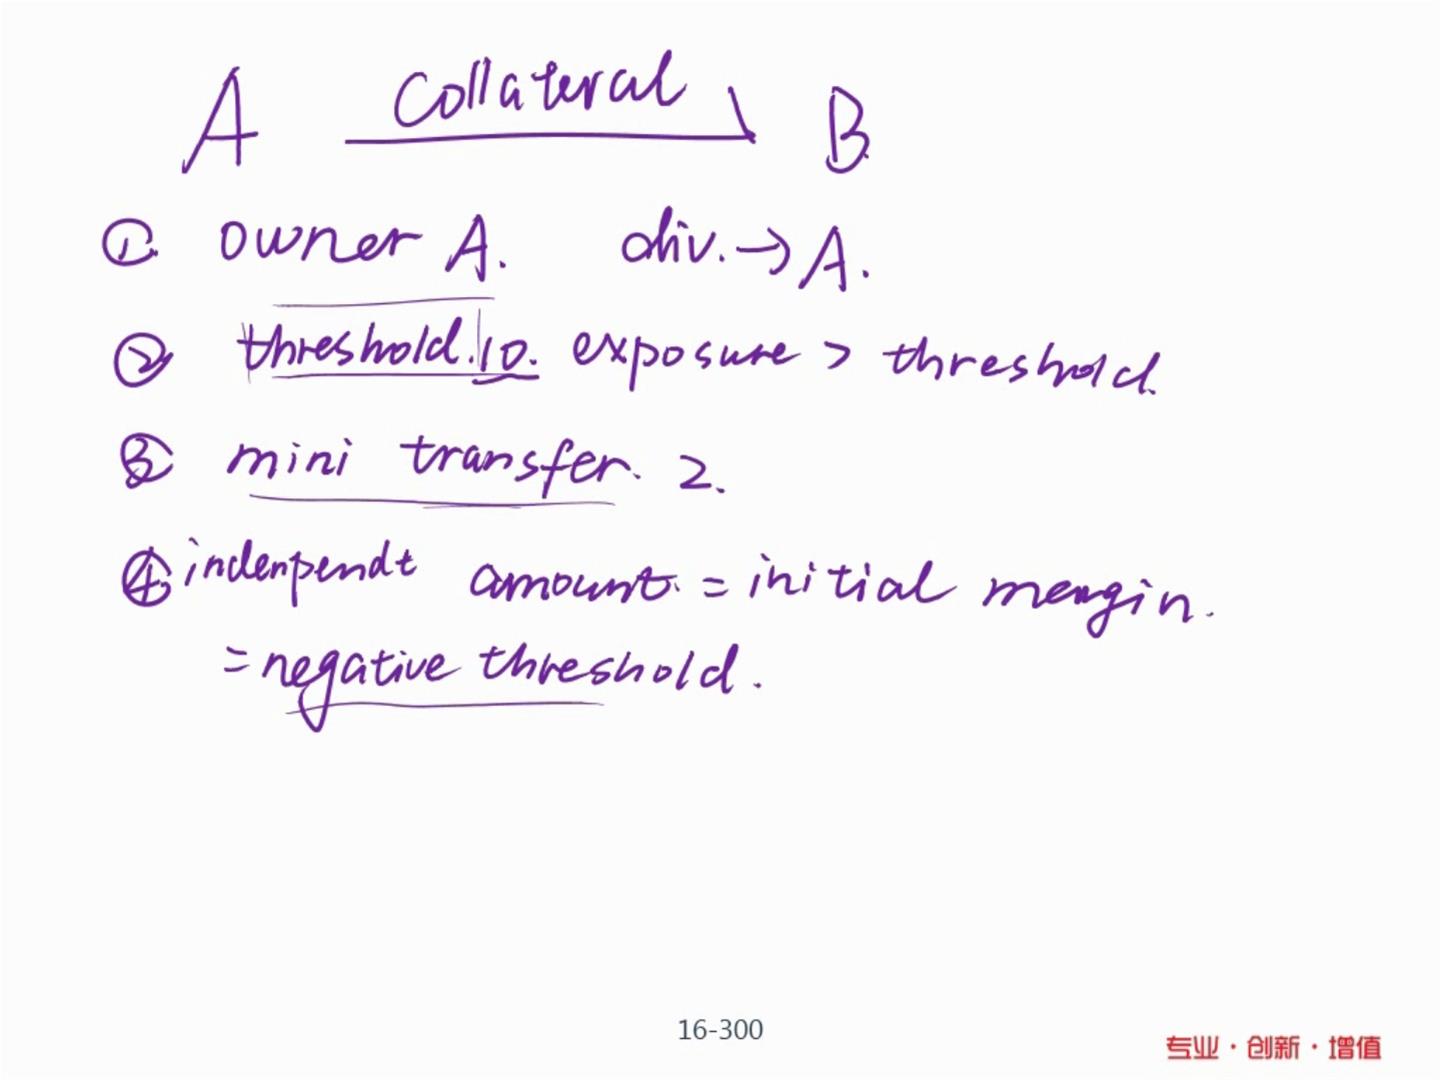 A Collateral B
① owner A. div. → A.
② threshold. 10. exposure > threshold.
③ mini transfer. 2.
④ indenpendt amount. = initial mengin.
= negative threshold.
16-300
专业·创新·增值